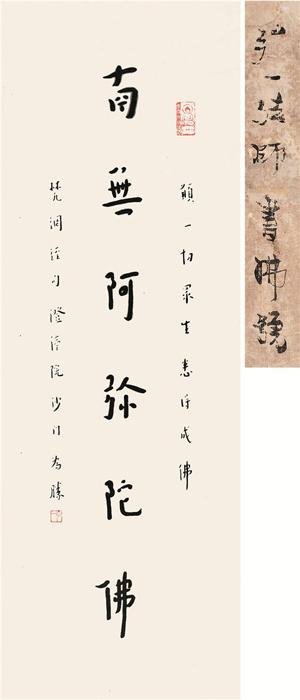 弘一法師書佛號
願一切眾生悉得成佛
南無阿弥陀佛
梵網經句 澄渟院沙門為勝